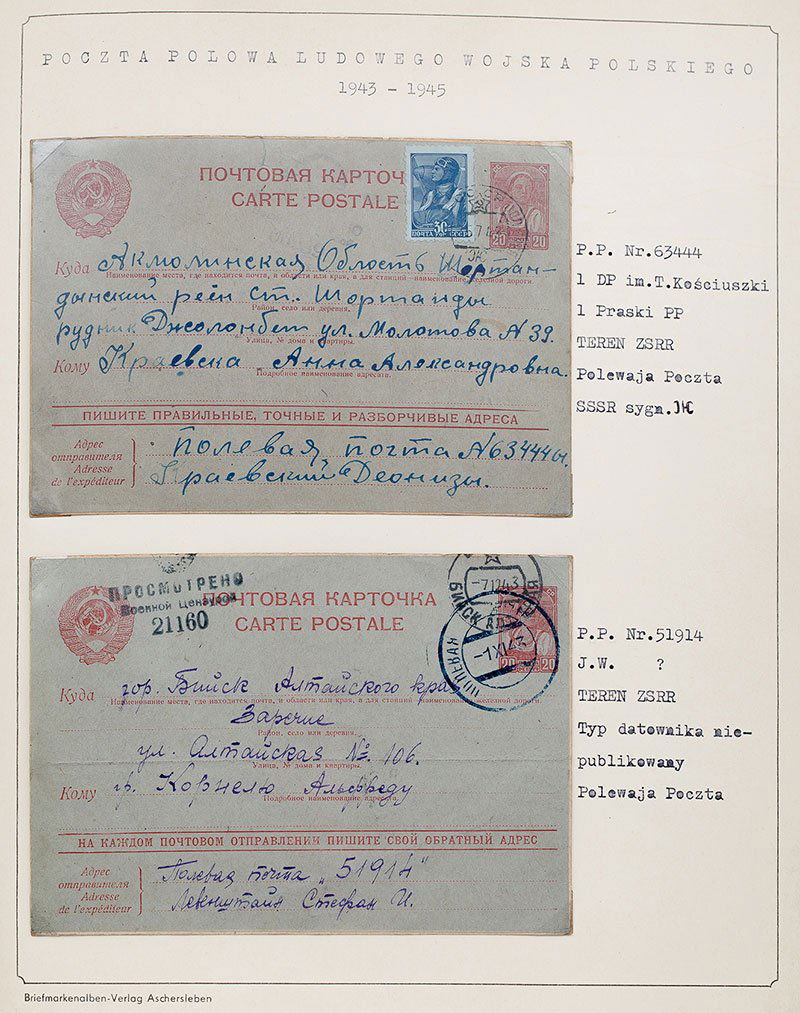 POCZTA POLOWA LUDOWEGO WOJSKA POLSKIEGO
1943 - 1945
ПОЧТОВАЯ КАРТОЧ
CARTE POSTALE
30
ПОЧТА СССР
20 20
Куда Акмолинская Область Шортан-
Наименование места, где находится почта, и области или края, а для станций наименование железной дороги.
дынский реён ст. Шортанды
Район, село или деревня.
рудник Джоломбет ул. Молотова N 39.
Улица, № дома и квартиры.
Кому Краевска Анна Александровна.
Подробное наименование адресата.
ПИШИТЕ ПРАВИЛЬНЫЕ, ТОЧНЫЕ И РАЗБОРЧИВЫЕ АДРЕСА
Адрес
отправителя
Adresse
de l'expéditeur
Полевая почта N 63444
Краевский Деонизы.
P.P. Nr.63444
1 DP im.T.Kościuszki
1 Praski PP
TEREN ZSRR
Polewaja Poczta
SSSR sygn.Ж
ПРОСМОТРЕНО
Военной Цензурой
21160
ПОЧТОВАЯ КАРТОЧКА
CARTE POSTALE
БИЙСК
-71243
ПОЛЕВАЯ
-1XI43
20 20
Куда гор. Бийск Алтайского края
Наименование места, где находится почта, и области или края, а для станций наименование железной дороги.
Заречие
Район, село или деревня.
ул. Алтайская №. 106.
Улица, № дома и квартиры.
Кому гр. Корнелю Альфреду
Подробное наименование адресата.
НА КАЖДОМ ПОЧТОВОМ ОТПРАВЛЕНИИ ПИШИТЕ СВОЙ ОБРАТНЫЙ АДРЕС
Адрес
отправителя
Adresse
de l'expéditeur
Полевая почта „51914"
Левенштайн Стефан И.
P.P. Nr.51914
J.W. ?
TEREN ZSRR
Typ datownika nie-
publikowany
Polewaja Poczta
Briefmarkenalben-Verlag Aschersleben